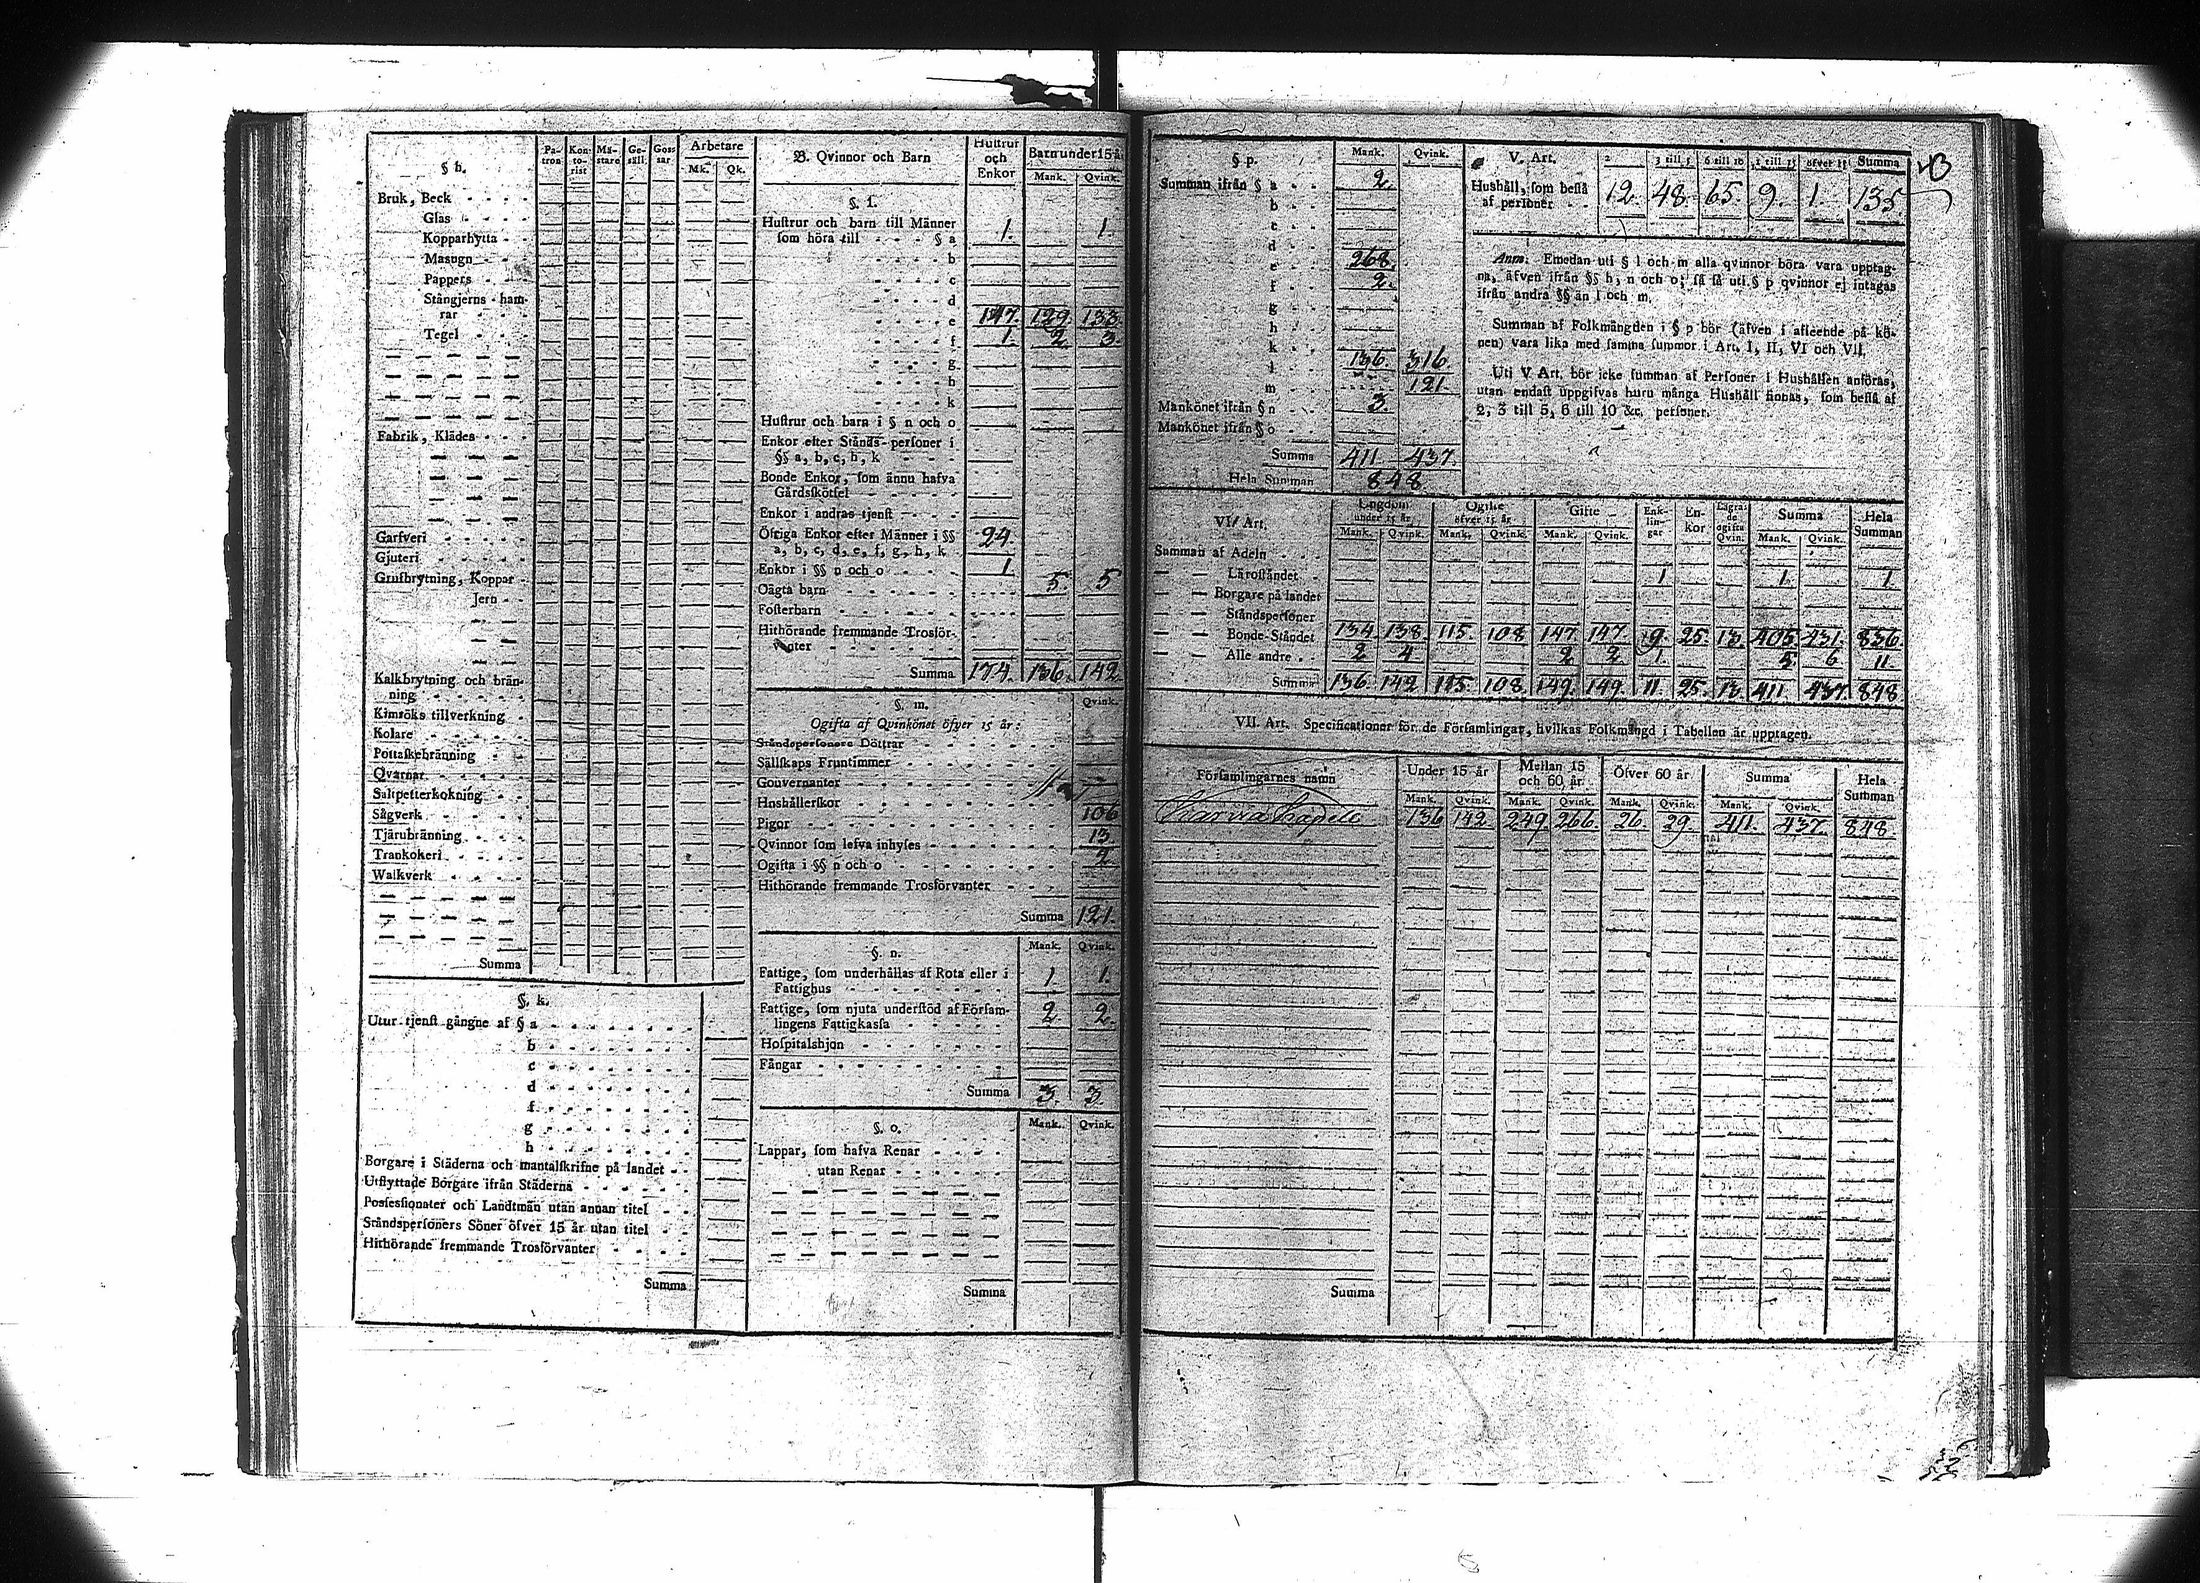 § h.
Pa-tron Kon-to-rist Mä-stare Ge-säll Gos-sar Arbetare
Mk. Qk.
Bruk, Beck
Glas
Kopparhytta
Masugn
Pappers
Stångjerns-ham-
rar
Tegel
Fabrik, Klädes
Garfveri
Gjuteri
Grufbrytning, Koppar
Jern
Kalkbrytning och brän-
ning
Kimröks tillverkning
Kolare
Pottaskebränning
Qvarnar
Saltpetterkokning
Sågverk
Tjärubränning
Trankokeri
Walkverk
Summa
§. k.
Utur tjenst gångne af § a
b
c
d
f
g
h
Borgare i Städerna och mantalskrifne på landet
Utflyttade Borgare ifrån Städerna
Possessionater och Landtmän utan annan titel
Ståndspersoners Söner öfver 15 år utan titel
Hithörande fremmande Trosförvanter
Summa
B. Qvinnor och Barn
Hustrur och Enkor
Barn under 15 år
Mank. Qvink.
§. l.
Hustrur och barn till Männer
som höra till § a 1. 1.
b
c
d
e 147. 129. 133.
f 1. 2. 3.
g
h
k
Hustrur och barn i § n och o
Enkor efter Stånds-personer i
§§ a, b, c, h, k
Bonde Enkor, som ännu hafva
Gårdsskötsel
Enkor i andras tjenst
Öfriga Enkor efter Männer i §§ 24.
a, b, c, d, e, f, g, h, k
Enkor i §§ n och o 1
Oägta barn 5. 5
Fosterbarn
Hithörande fremmande Trosför-
vanter
Summa 174. 136. 142.
§. m. Qvink.
Ogifta af Qvinkönet öfver 15 år:
Ståndspersoners Döttrar
Sällskaps Fruntimmer
Gouvernanter
Hushållerskor
Pigor 106
Qvinnor som lefva inhyses 13
Ogifta i §§ n och o 2
Hithörande fremmande Trosförvanter
Summa 121.
§. n. Mank. Qvink.
Fattige, som underhållas af Rota eller i
Fattighus 1. 1.
Fattige, som njuta understöd af Församlingens
Fattigkassa 2. 2.
Hospitalshjon
Fångar
Summa 3. 3.
§. o. Mank. Qvink.
Lappar, som hafva Renar
utan Renar
Summa
§ p. Mank. Qvink.
Summan ifrån § a 2.
b
c
d
e 268.
f 2.
g
h
k
l 136. 316.
m 121
Mankönet ifrån § n 3.
Mankönet ifrån § o
Summa 411. 437.
Hela Summan 848
V. Art. 2 3 till 5 6 till 10 11 till 15 öfver 15 Summa
Hushåll, som bestå
af personer 12. 48. 65. 9. 1. 135.
Anm. Emedan uti § l och m alla qvinnor böra vara upptag-
na, äfven ifrån §§ h, n och o; så få uti § p qvinnor ej intagas
ifrån andra §§ än l och m.
Summan af Folkmängden i § p bör (äfven i afseende på kö-
nen) vara lika med samma summor i Art. I, II, VI och VII.
Uti V Art. bör icke summan af Personer i Hushållen anföras,
utan endast uppgifvas huru många Hushåll finnas, som bestå af
2, 3 till 5, 6 till 10 &c. personer.
VI. Art.
Ungdom under 15 år Ogifte öfver 15 år Gifte Enk-lin-gar En-kor Lägra-de ogifta Qvin. Summa Hela Summan
Mank. Qvink. Mank. Qvink. Mank. Qvink. Mank. Qvink.
Summan af Adeln
Läroståndet 1 1. 1.
Borgare på landet
Ståndspersoner
Bonde-Ståndet 134. 138. 115. 108 147. 147. 9. 25. 13. 405. 431. 836
Alle andre 2 4 2 2. 1. 5. 6 11.
Summa 136. 142 115. 108. 149. 149. 11. 25. 13. 411 437. 848
VII. Art. Specificationer för de Församlingar, hvilkas Folkmängd i Tabellen är upptagen.
Församlingarnes namn Under 15 år Mellan 15 och 60 år Öfver 60 år Summa Hela Summan
Mank. Qvink. Mank. Qvink. Mank. Qvink. Mank. Qvink.
Karvia Kapell 136 142 249. 266. 26. 29. 411. 437. 848.
Summa